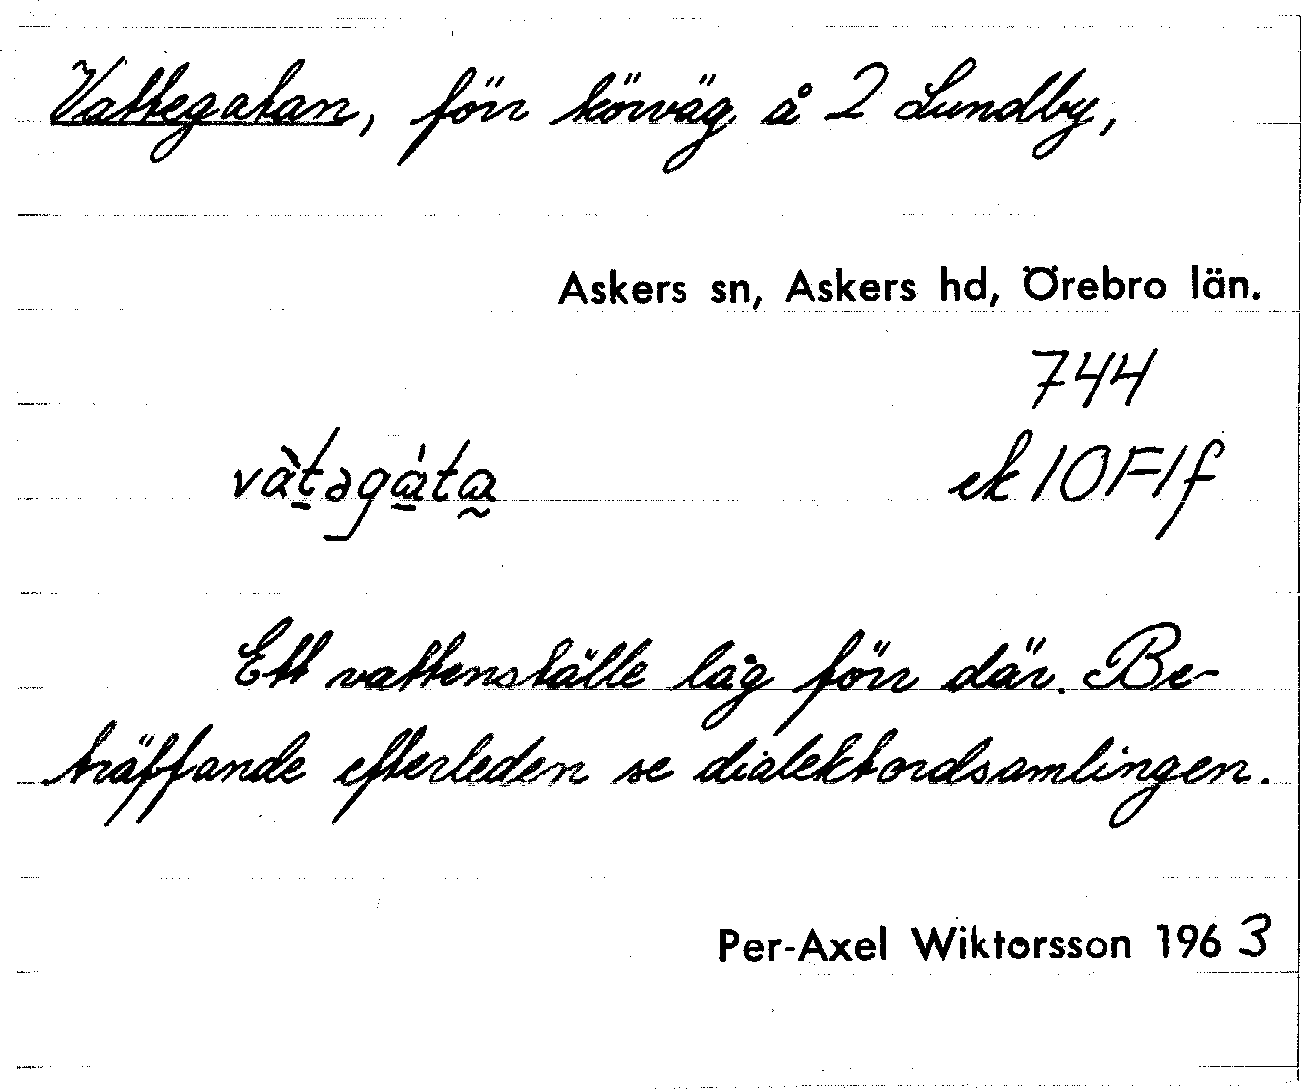 Vattegatan, förr körväg å 2 Lundby,
Askers sn, Askers hd, Örebro län.
744
vàt̠əgá̠ta̰ ek 10F1f
Ett vattenställe låg förr där. Be-
träffande efterleden se dialektordsamlingen.
Per-Axel Wiktorsson 1963